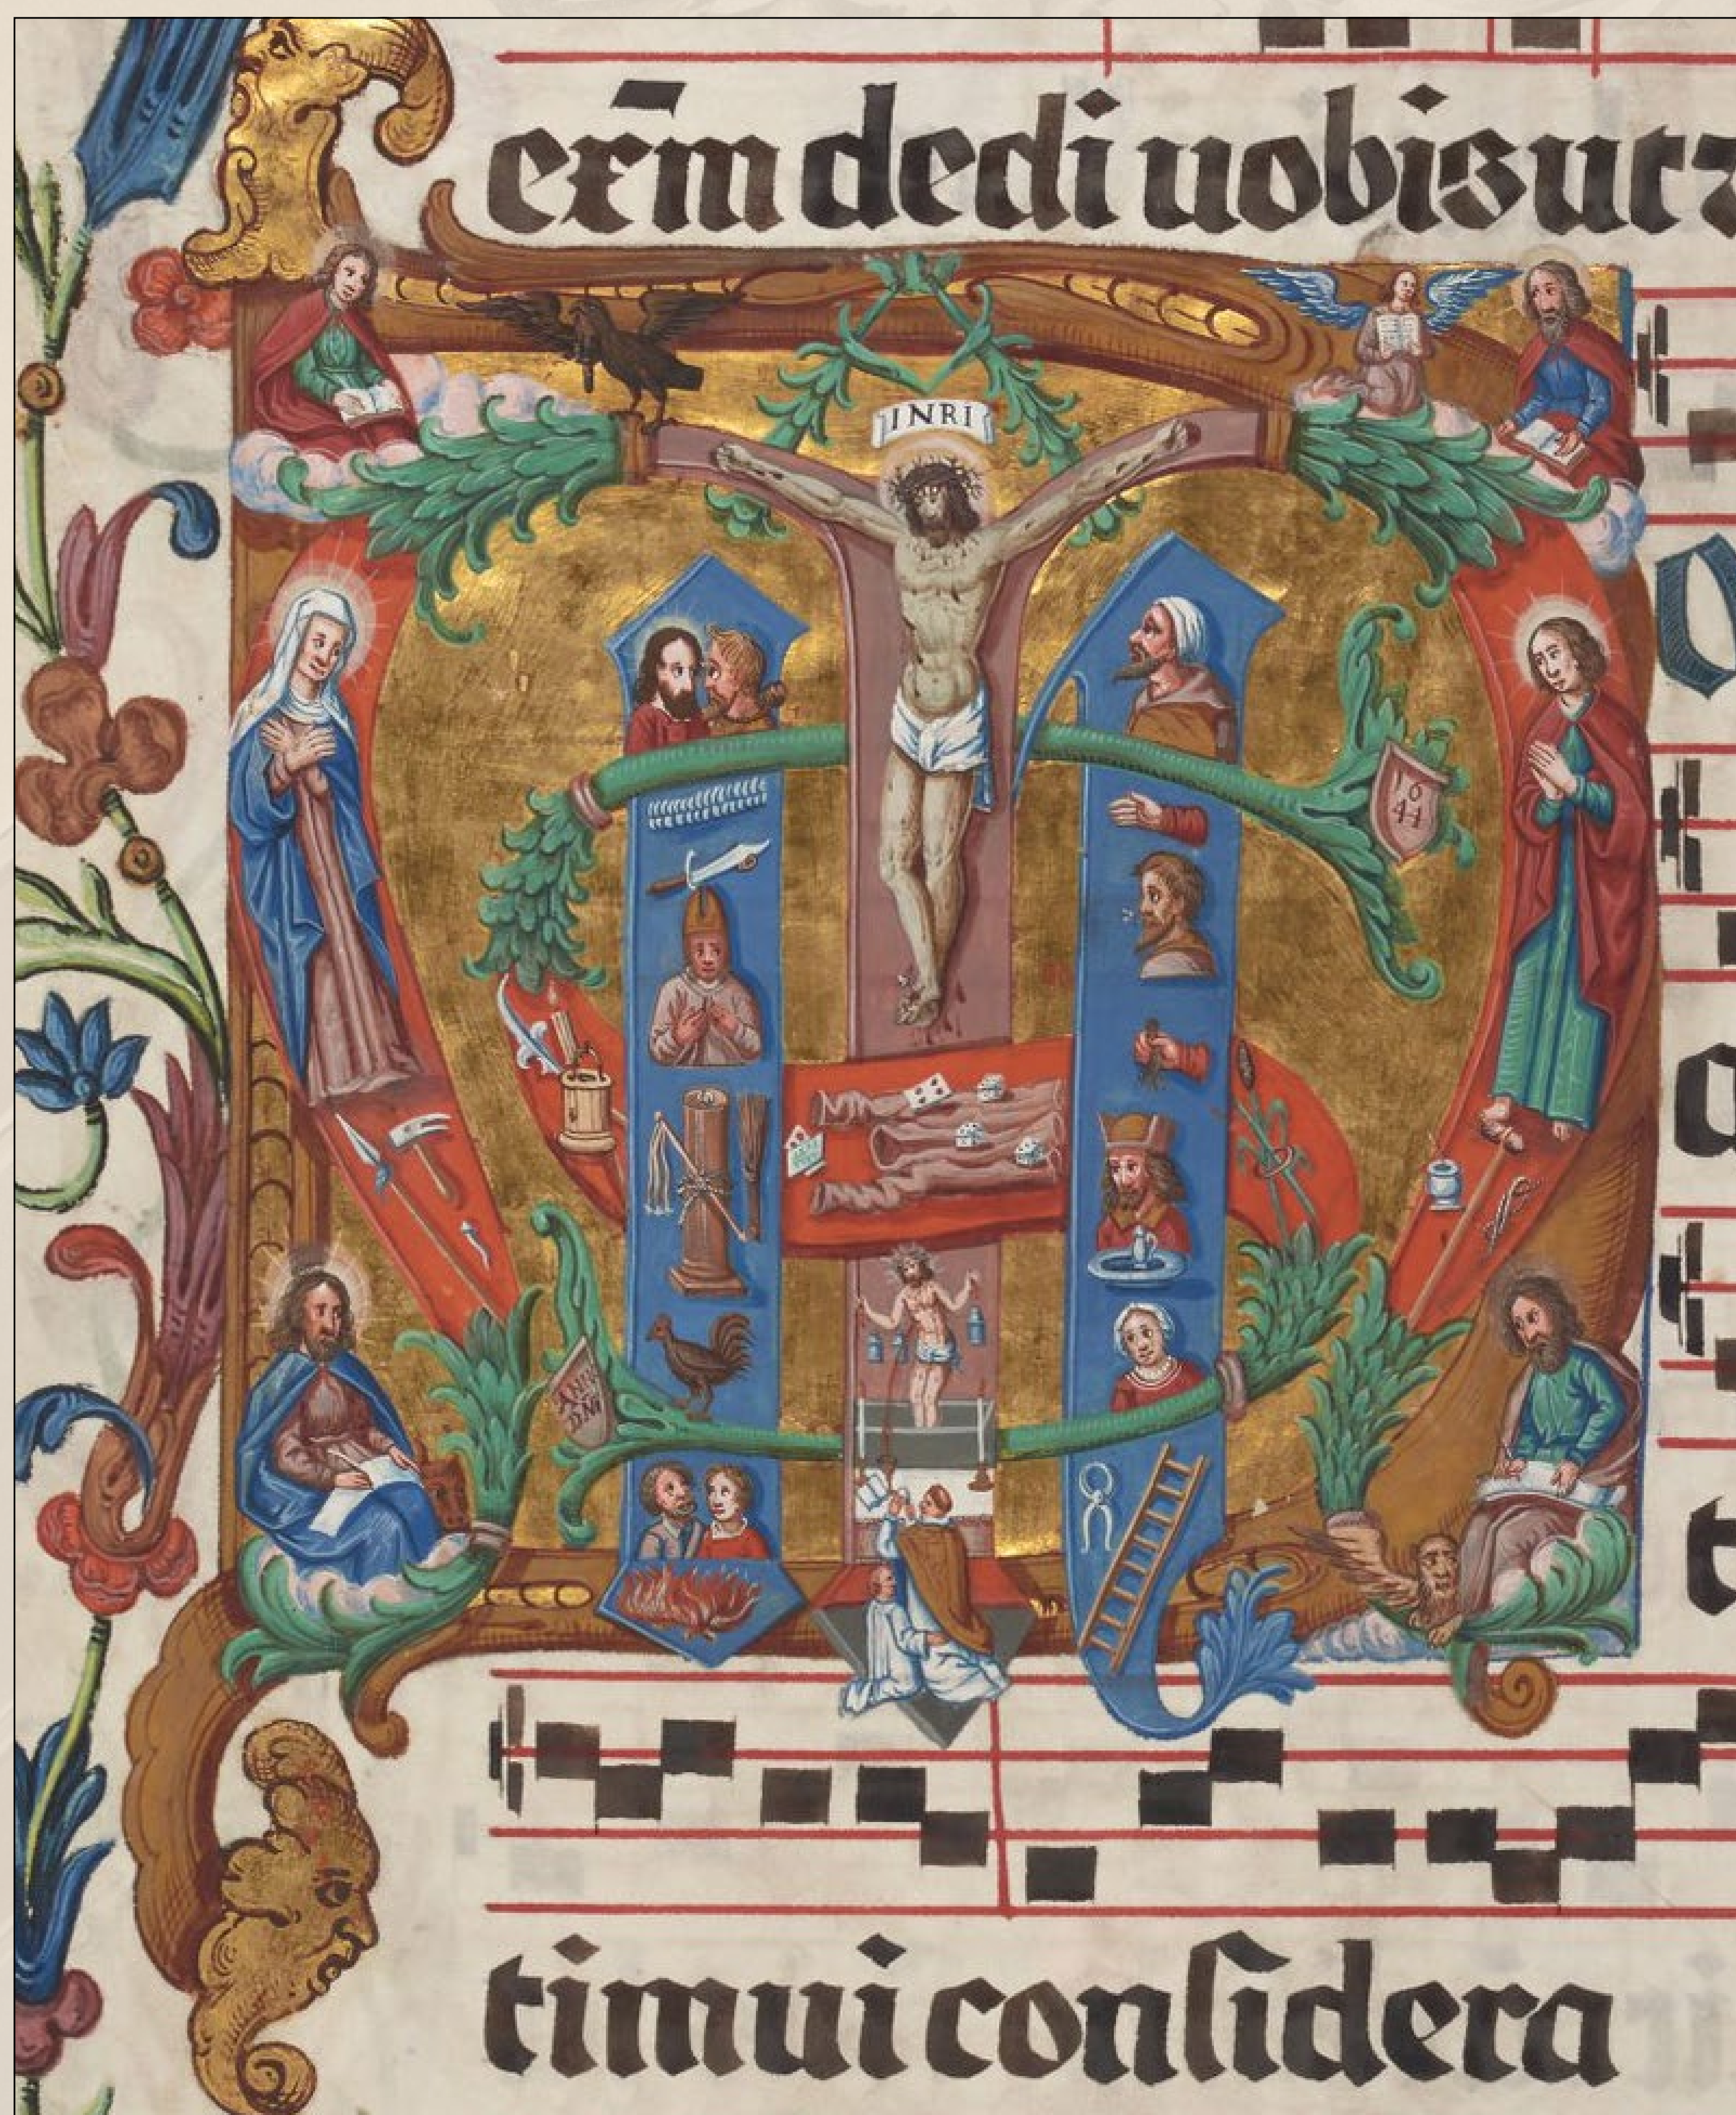 ex̄m dedi uobis ut
INRI
16
44
DNI
timui considera